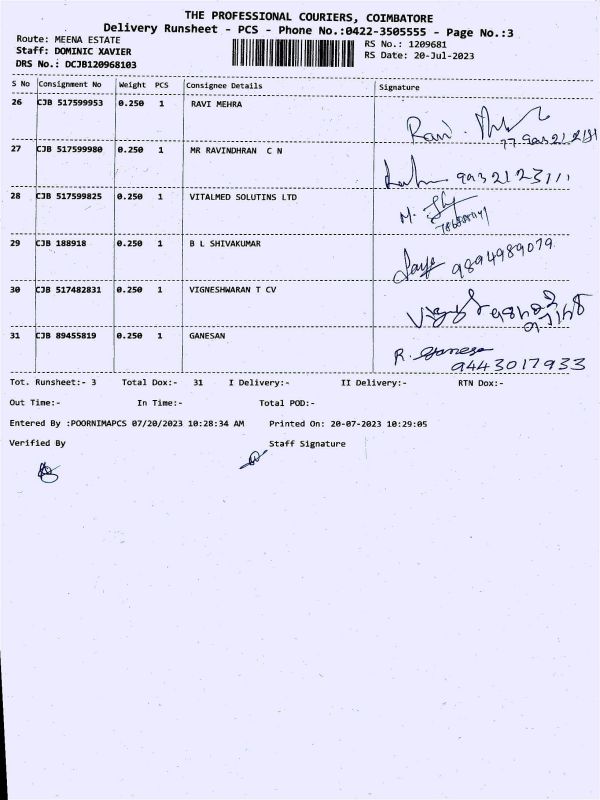 THE PROFESSIONAL COURIERS, COIMBATORE
Delivery Runsheet - PCS - Phone No.:0422-3505555 - Page No.:3
Route: MEENA ESTATE
Staff: DOMINIC XAVIER
DRS No.: DCJB120968103
RS No.: 1209681
RS Date: 20-Jul-2023
S No Consignment No Weight PCS Consignee Details Signature
26 CJB 517599953 0.250 1 RAVI MEHRA
Ravi.
27 CJB 517599980 0.250 1 MR RAVINDHRAN C N
28 CJB 517599825 0.250 1 VITALMED SOLUTINS LTD
M.
29 CJB 188918 0.250 1 B L SHIVAKUMAR
9894989079
30 CJB 517482831 0.250 1 VIGNESHWARAN T CV
31 CJB 89455819 0.250 1 GANESAN
R. Ganesa
9443017933
Tot. Runsheet:- 3 Total Dox:- 31 I Delivery:- II Delivery:- RTN Dox:-
Out Time:- In Time:- Total POD:-
Entered By :POORNIMAPCS 07/20/2023 10:28:34 AM Printed On: 20-07-2023 10:29:05
Verified By Staff Signature